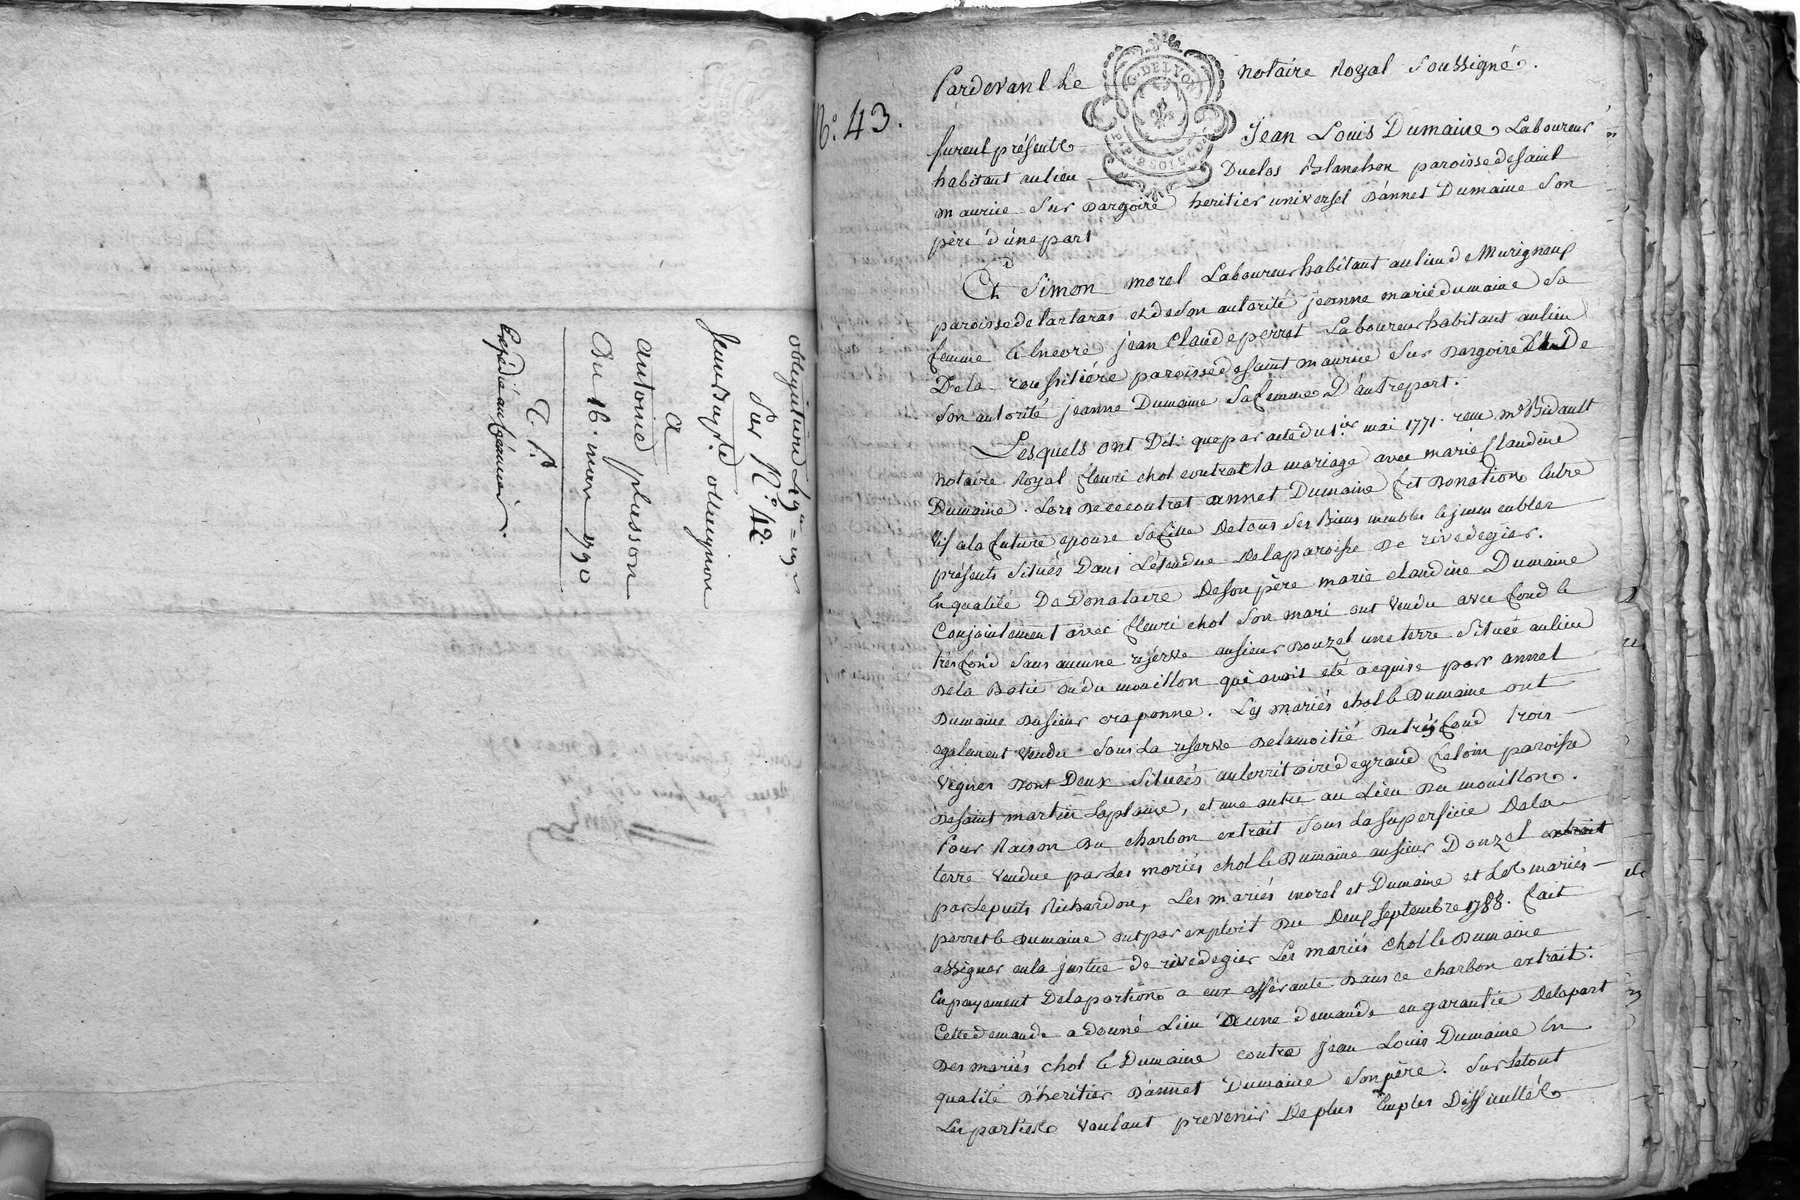 obligation
Sur N.° 42.
Jean Bapt.e
a
antoine plusson
Du 16. mars 1790
C. P.
Expédié au fermier.
N.° 43.
G. DE LYON
Pardevant Le notaire Royal Soussigné.
furent présents Jean Louis Dumaine Laboureur
habitant au lieu Duclos Blanchon paroisse de Saint
maurice Sur Dargoire heritier universel Dannet Dumaine Son
père d'une part
Et Simon morel Laboureur habitant au lieu de Murigneux
paroisse de tartaras et de Son autorité jeanne marie dumaine Sa
femme & Encore jean Claude perret Laboureur habitant au lieu
De la roussiliére paroisse de Saint maurice Sur Dargoire & De
Son autorité jeanne Dumaine Sa femme D'autre part.
Lesquels ont Dit: que par acte du 1.er mai 1771. reçu m.e Bidault
notaire Royal fleuri chol contracta mariage avec marie Claudine
Dumaine. Lors De ce contrat annet Dumaine fit Donation Entre
Vif a la future epouse Sa fille De tous Ses Biens meubles & jmmeubles
présents Situés Dans L'étendue De la paroisse De rivedegier.
En qualité De Donataire De Son père marie claudine Dumaine
Conjointement avec fleuri chol Son mari ont Vendu avec fond &
tresfond Sans aucune réserve au sieur Donzel une terre Située au lieu
De la Batie ou du mouillon qui avoit été acquise par annet
Dumaine Du sieur craponne. Les mariés chol & Dumaine ont
également Vendu Sous La réserve De la moitié Du tresfond trois
Vignes Dont Deux Situées au territoire de grand feloin paroisse
De Saint martin Laplaine, et une autre au Lieu Du mouillon.
Pour Raison Du charbon extrait Sous La Superficie De la
terre Vendue par Les mariés chol & Dumaine au sieur Donzel extrait
par Le puits Richardon, Les mariés morel et Dumaine et Les mariés
perret & Dumaine ont par exploit Du Deux Septembre 1788. fait
assigner en la justice de rivedegier Les mariés Chol & Dumaine
En payement De la portion a eux afférante Dans ce charbon extrait.
Cette demande a donné Lieu a une demande en garantie De la part
Des mariés chol & Dumaine contre Jean Louis Dumaine En
qualité D'heritier Dannet Dumaine Son père. Sur Le tout
Les parties Voulant prevenir De plus amples Difficultés